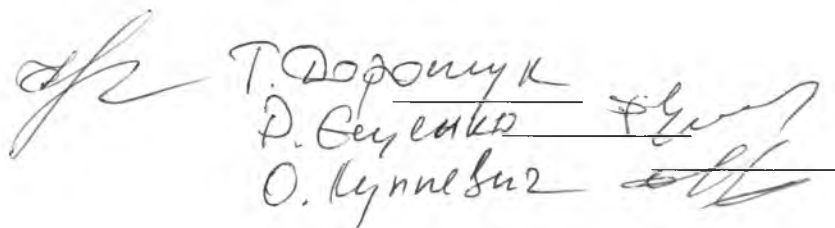 Т. Дорощук
Д. Єщенко
О. Куцневич